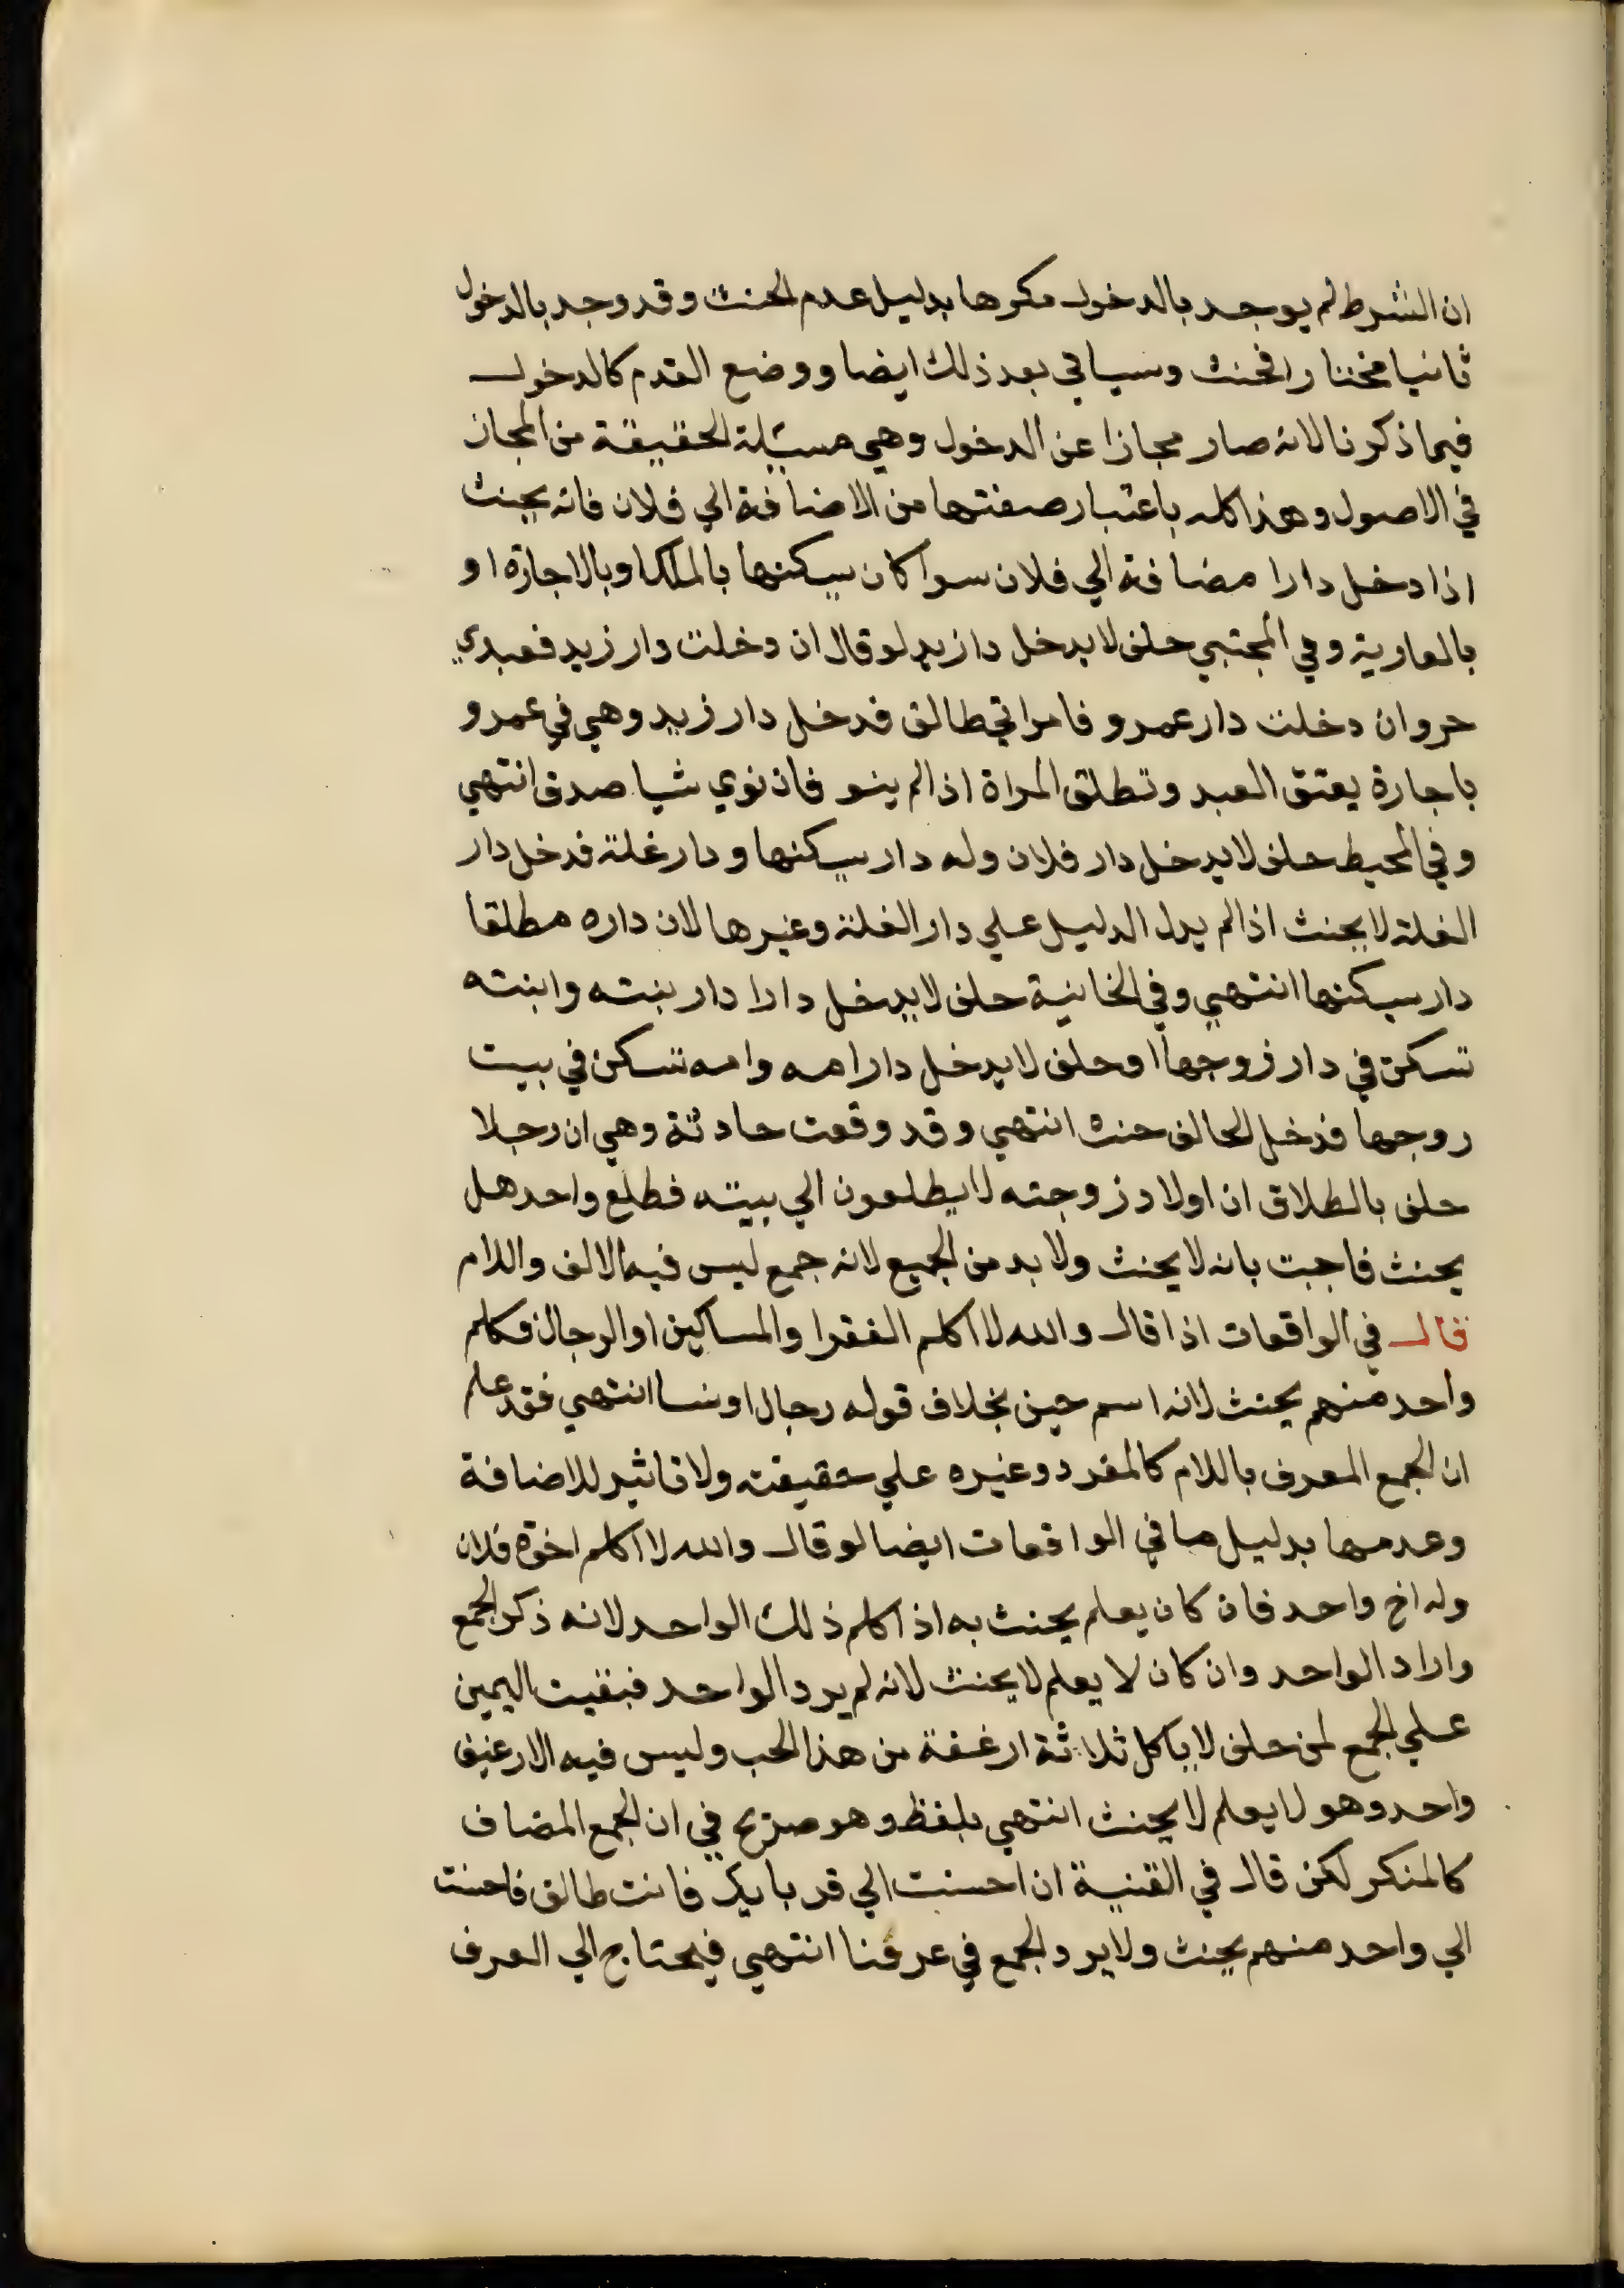 ان الشرط لم يوجد بالدخول مكرها بدليل عدم الحنث وقد وجد بالدخول
ثانيا مختارا فحنث وسياتي بعد ذلك ايضا ووضع القدم كالدخول
فيما ذكرنا لانه صار مجازا عن الدخول وهي مسئلة الحقيقة من المجاز
في الاصول وهذا كله باعتبار صفتها من الاضافة الي فلان فانه يحنث
اذا دخل دارا مضافة الي فلان سوا كان يسكنها بالملك او بالاجازة او
بالعارية وفي المجتبي حلف لا يدخل دار زيد لو قال ان دخلت دار زيد فعبدي
حر وان دخلت دار عمرو فامراتي طالق فدخل دار زيد وهي في عمرو
باجارة يعتق العبد وتطلق المراة اذا لم ينو فان نوي شيا صدق انتهي
وفي المحيط حلف لا يدخل دار فلان وله دار يسكنها ودار غلة فدخل دار
الغلة لا يحنث اذا لم يدل الدليل علي دار الغلة وغيرها لان داره مطلقا
دار يسكنها انتهي وفي الخانية حلف لا يدخل دارا دار بنته وابنته
تسكن في دار زوجها او حلف لا يدخل دار امه وامه تسكن في بيت
روجها فدخل الحالف حنث انتهي وقد وقعت حادثة وهي ان رجلا
حلف بالطلاق ان اولاد زوجته لا يطلعون الي بيته فطلع واحد هل
يحنث فاجبت بانه لا يحنث ولا بد من الجميع لانه جمع ليس فيه الالف واللام
قال في الواقعات اذا قال والله لا اكلم الفقرا والمساكين او الرجال فكلم
واحد منهم يحنث لانه اسم جنس بخلاف قوله رجال او نسا انتهي فقد علم
ان الجمع المعرف باللام كالمفرد وغيره علي حقيقته ولا تاثير للاضافة
وعدمها بدليل ما في الواقعات ايضا لو قال والله لا اكلم اخوة فلان
وله اخ واحد فان كان يعلم يحنث به اذا كلم ذلك الواحد لانه ذكر الجمع
واراد الواحد وان كان لا يعلم لا يحنث لانه لم يرد الواحد فبقيت اليمين
علي الجمع لمن حلف لا ياكل ثلاثة ارغفة من هذا الحب وليس فيه الا رغيف
واحد وهو لا يعلم لا يحنث انتهي بلفظ وهو صريح في ان الجمع المضاف
كالمنكر لكن قال في القنية ان احسنت الي قربايك فانت طالق فاحسنت
الي واحد منهم يحنث ولا يرد الجمع في عرفنا انتهي فيحتاج الي العرف